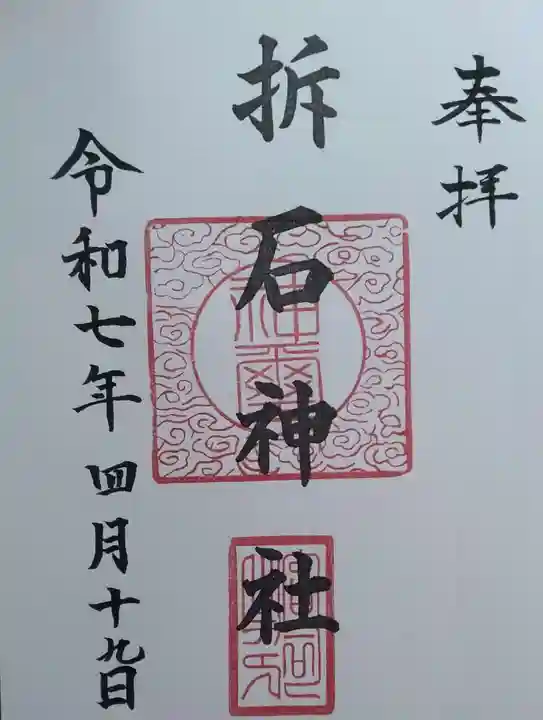 奉拝
拆石神社
令和七年四月十九日
神璽